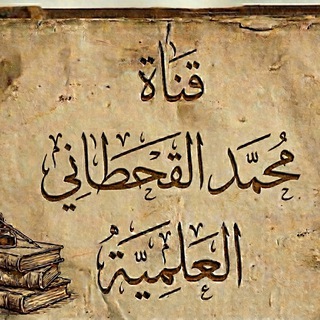 قَنَاة
مُحَمَّد القَحْطَانِي
العَلَمِيَّةُ